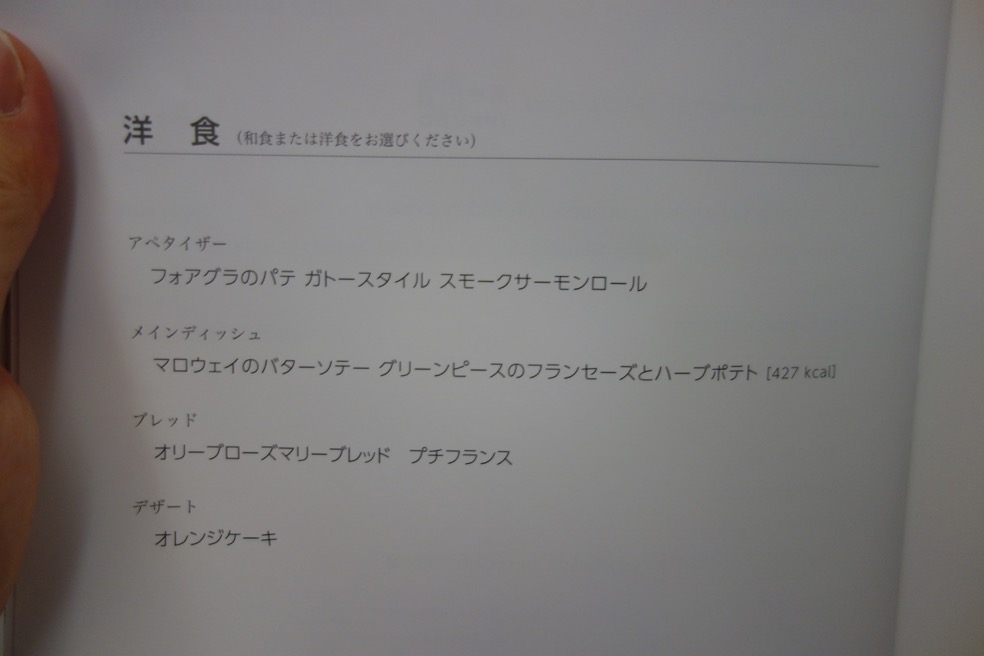 洋 食 (和食または洋食をお選びください)
アペタイザー
フォアグラのパテ ガトースタイル スモークサーモンロール
メインディッシュ
マロウェイのバターソテー グリーンピースのフランセーズとハーブポテト [427 kcal]
ブレッド
オリーブローズマリーブレッド プチフランス
デザート
オレンジケーキ